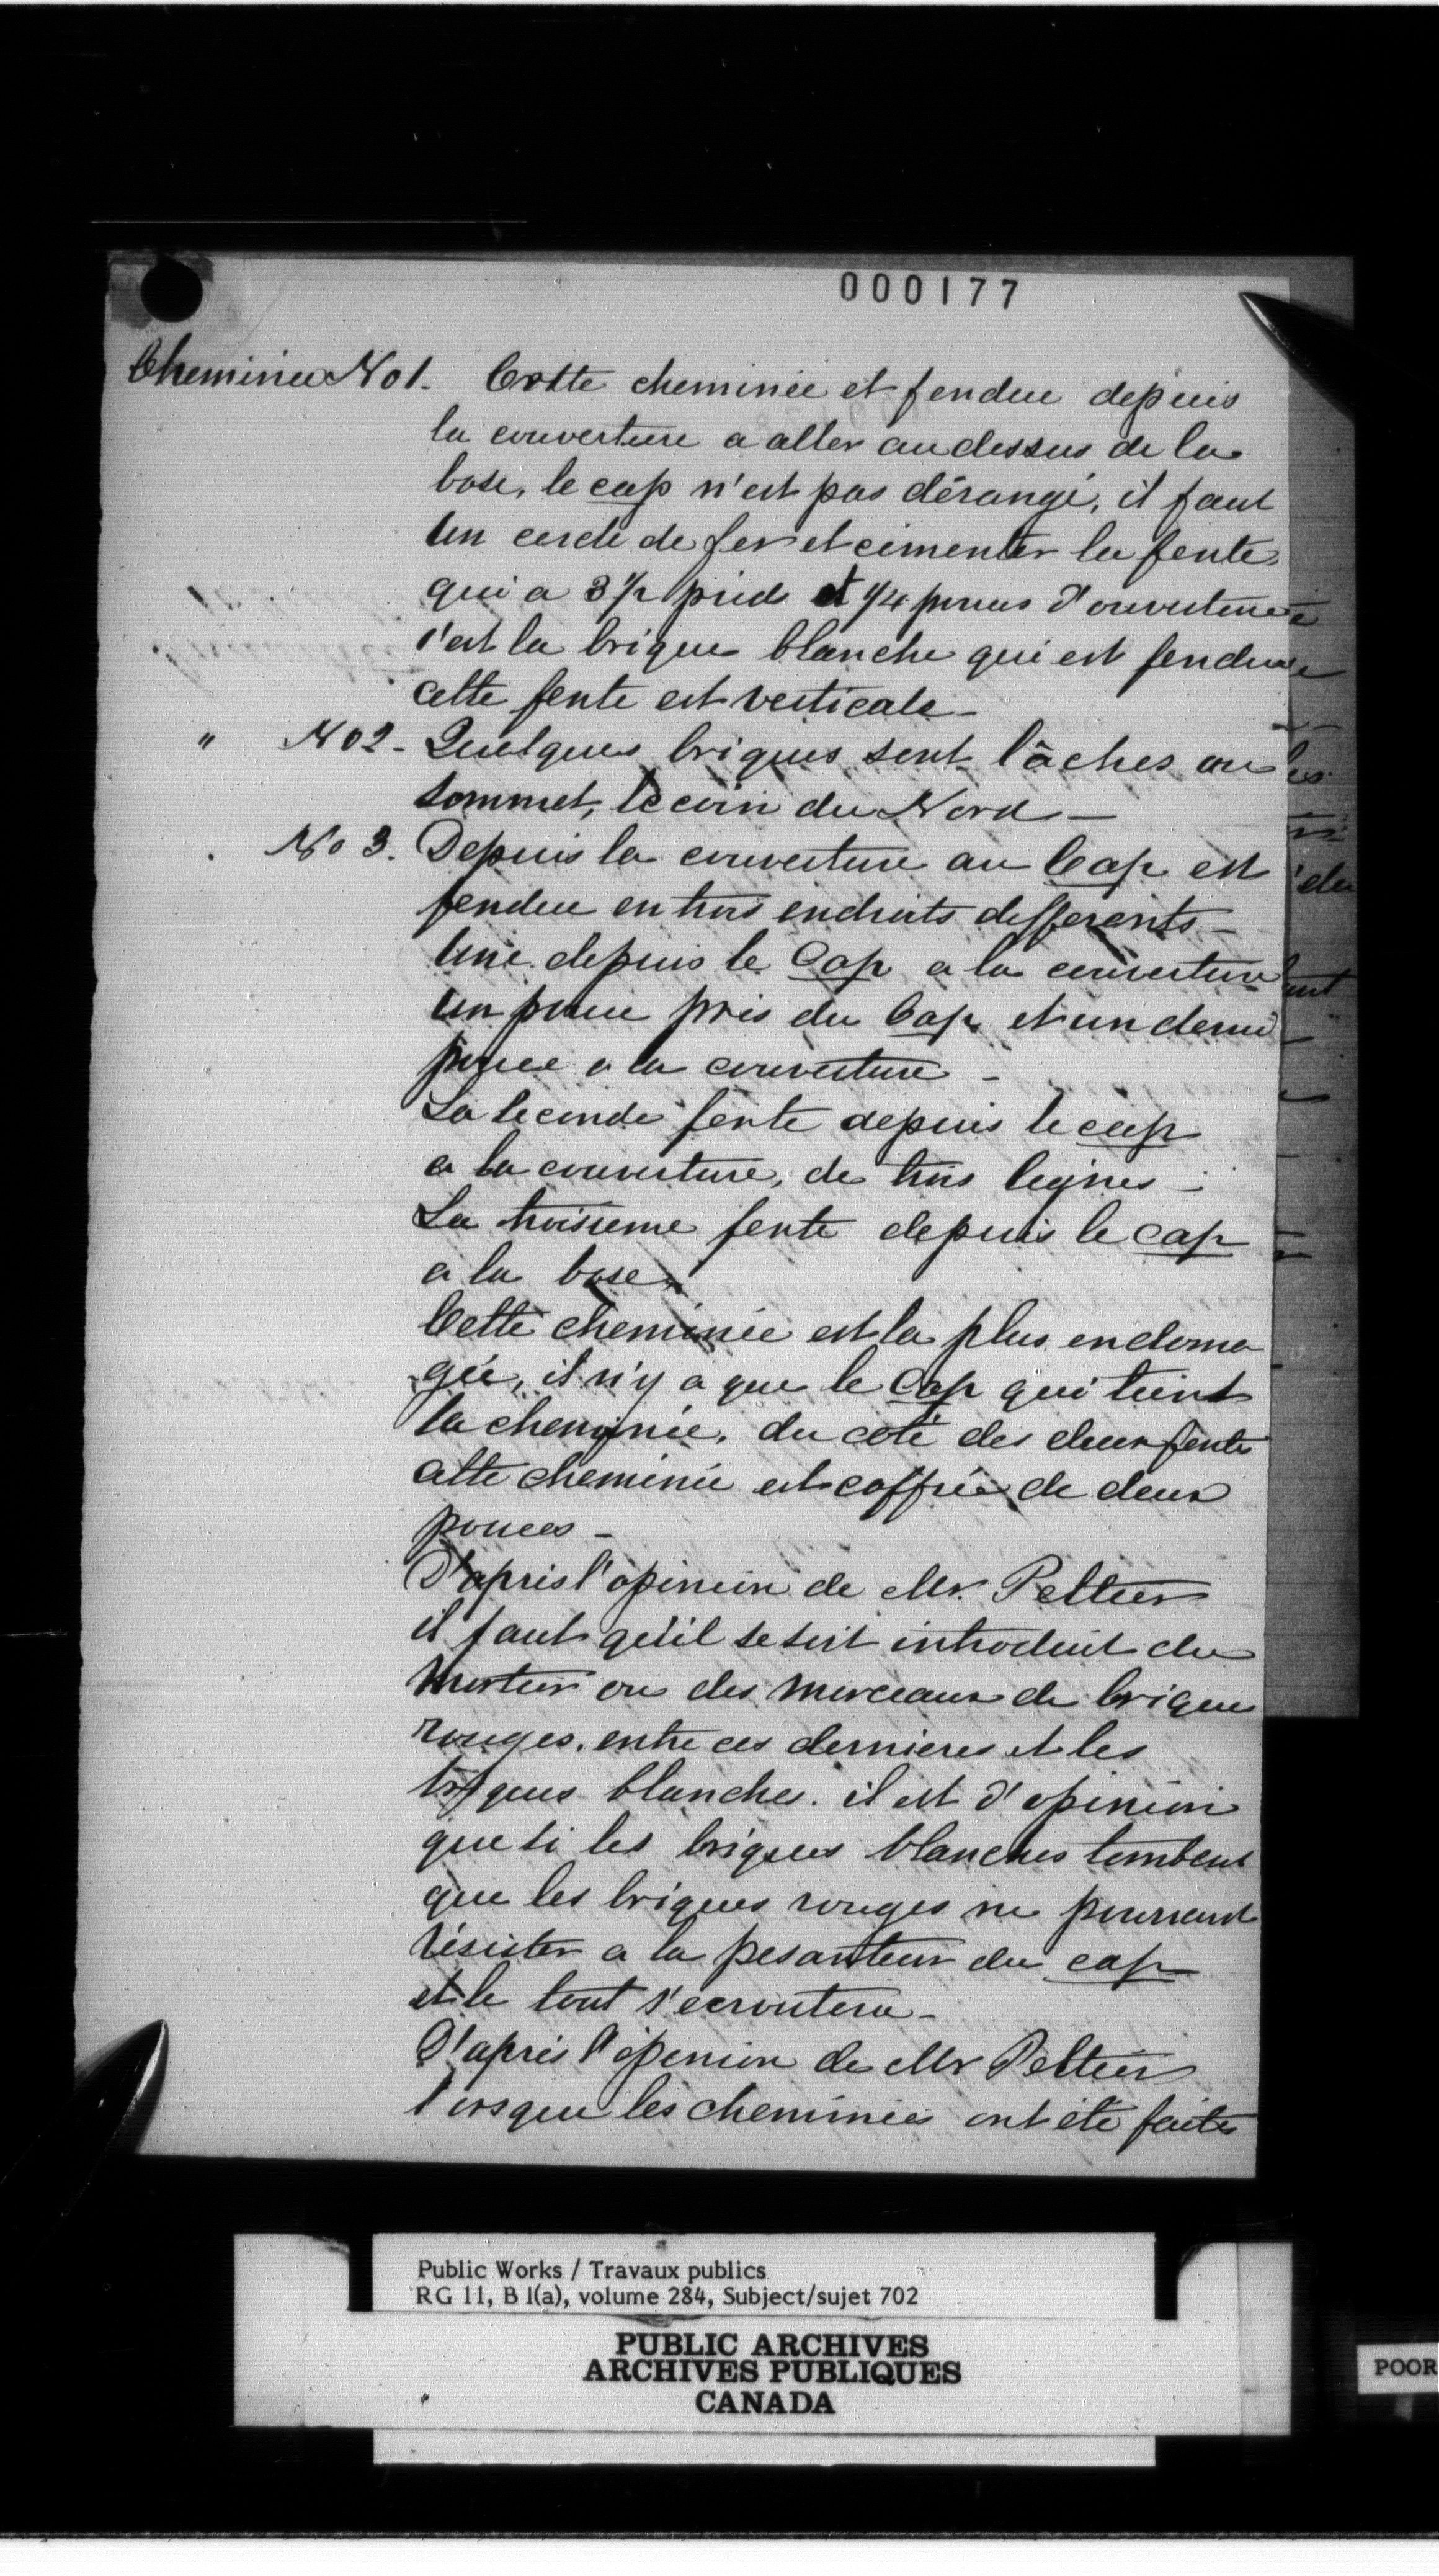 000177
Cheminée No 1. Cette cheminée et fendue depuis
la couverture a aller au dessus de la
base, le cap n'est pas dérangé, il faut
un cercle de fer et cimenter la fente
qui a 3 1/2 pieds et 1/4 pouces d'ouverture
s'est la brique blanche qui est fendue
cette fente est verticale -
" No 2 - Quelques briques sont lâches au
sommet, le coin du Nord -
No 3. Depuis la couverture au Cap est
fendue en trois endroits differents -
Une depuis le Cap a la couverture
un pouce près du Cap et un demi
pouce a la couverture -
La seconde fente depuis le cap
a la couverture, de trois lignes -
La troisieme fente depuis le cap
a la base.
Cette cheminée est la plus endoma
gée, il n'y a que le Cap qui tient
la cheminée, du coté des deux fente
cette cheminée est coffrée de deux
pouces -
D'apris l'opinion de Mr. Peltier
il faut qu'il se soit introduit du
mortier ou des morceaux de brique
rouges, entre ces dernieres et les
briques blanches. il est d'opinion
que si les briques blanches tombent
que les briques rouges ne pourront
résister a la pesanteur du cap
et le tout s'ecroutera -
D'après l'opinion de Mr Peltier
lorsque les cheminées ont été faites
Public Works / Travaux publics
RG 11, B 1(a), volume 284, Subject/sujet 702
PUBLIC ARCHIVES
ARCHIVES PUBLIQUES
CANADA
POOR